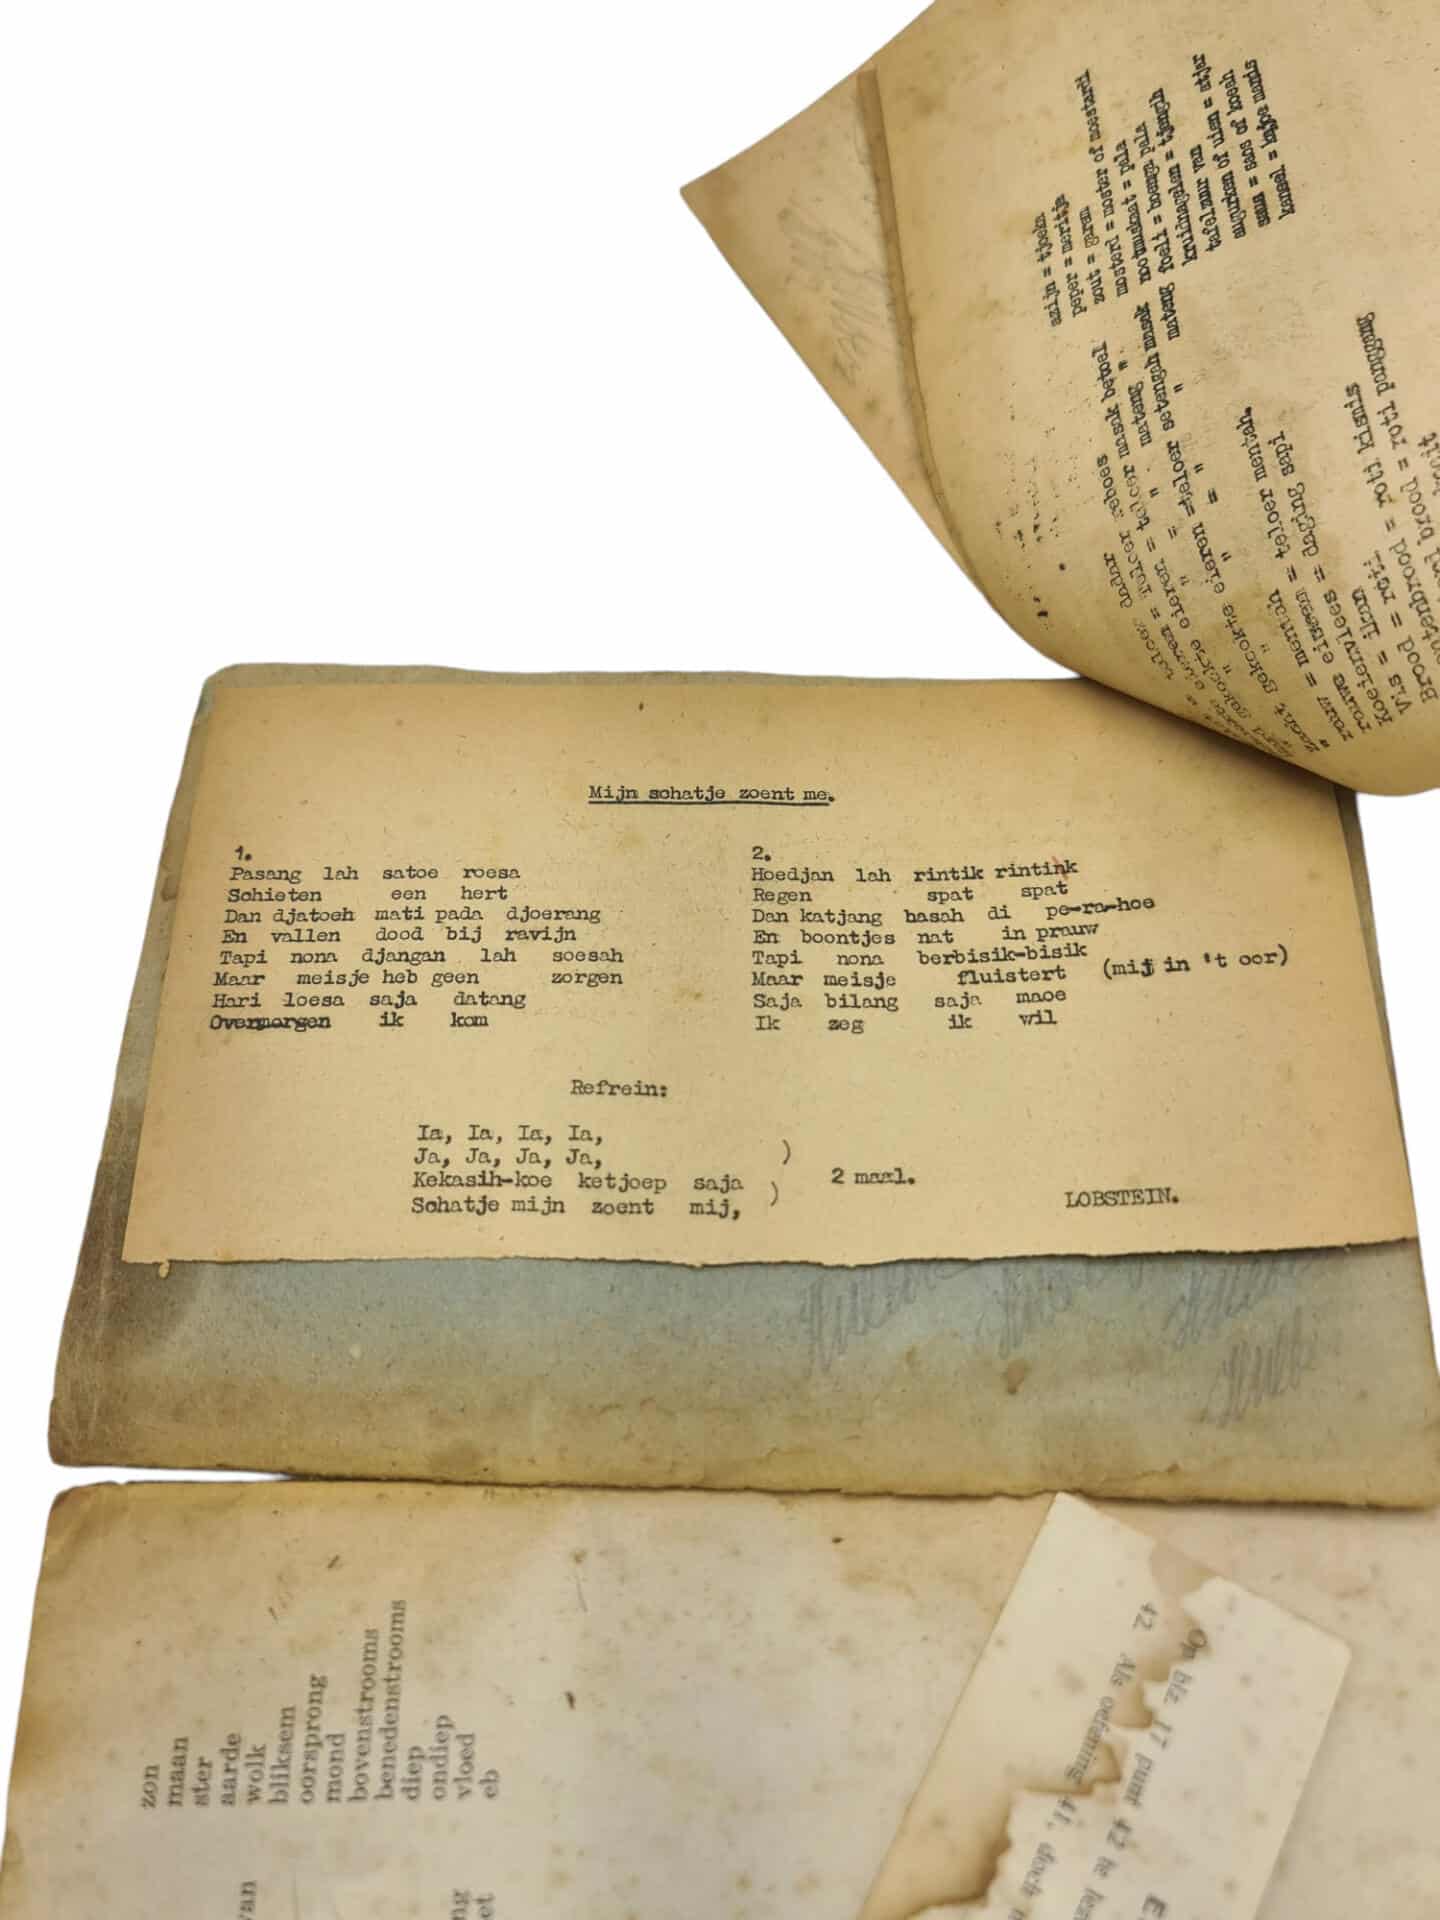 Mijn schatje zoent me.
1.
Pasang lah satoe roesa
Schieten een hert
Dan djatoeh mati pada djoerang
En vallen dood bij ravijn
Tapi nona djangan lah soesah
Maar meisje heb geen zorgen
Hari loesa saja datang
Overmorgen ik kom
2.
Hoedjan lah rintik rintink
Regen spat spat
Dan katjang basah di pe-ra-hoe
En boontjes nat in prauw
Tapi nona berbisik-bisik
Maar meisje fluistert (mij in 't oor)
Saja bilang saja maoe
Ik zeg ik wil
Refrein:
Ia, Ia, Ia, Ia,
Ja, Ja, Ja, Ja,
Kekasih-koe ketjoep saja
Schatje mijn zoent mij,
) 2 maal.
)
LOBSTEIN.
azijn = tjoeka
peper = meritja
zout = garam
mosterd = moster of moestard
nootmuskaat = pala
foelie = boenga pala
kruidnagelen = tjengkih
tafelzuur van
augurken of uien = atjar
saus = saos of koeah
kaneel = kajoe manis
teloer dadar
eieren = teloer reboes
gekookte eieren = teloer masak betoel
" " = " mateng "
zacht gekookte eieren = teloer setengah masak
" " " = " " mateng
rauw = mentah
rauwe eieren = teloer mentah.
Koeienvlees = daging sapi
Vis = ikan
Brood = roti
= roti kismis
brood = roti panggang
zon
maan
ster
aarde
wolk
bliksem
oorsprong
mond
bovenstrooms
benedenstrooms
diep
ondiep
vloed
eb
van
ng
et
Op blz. 17 punt 42 te
42. Als oefening 41, doch